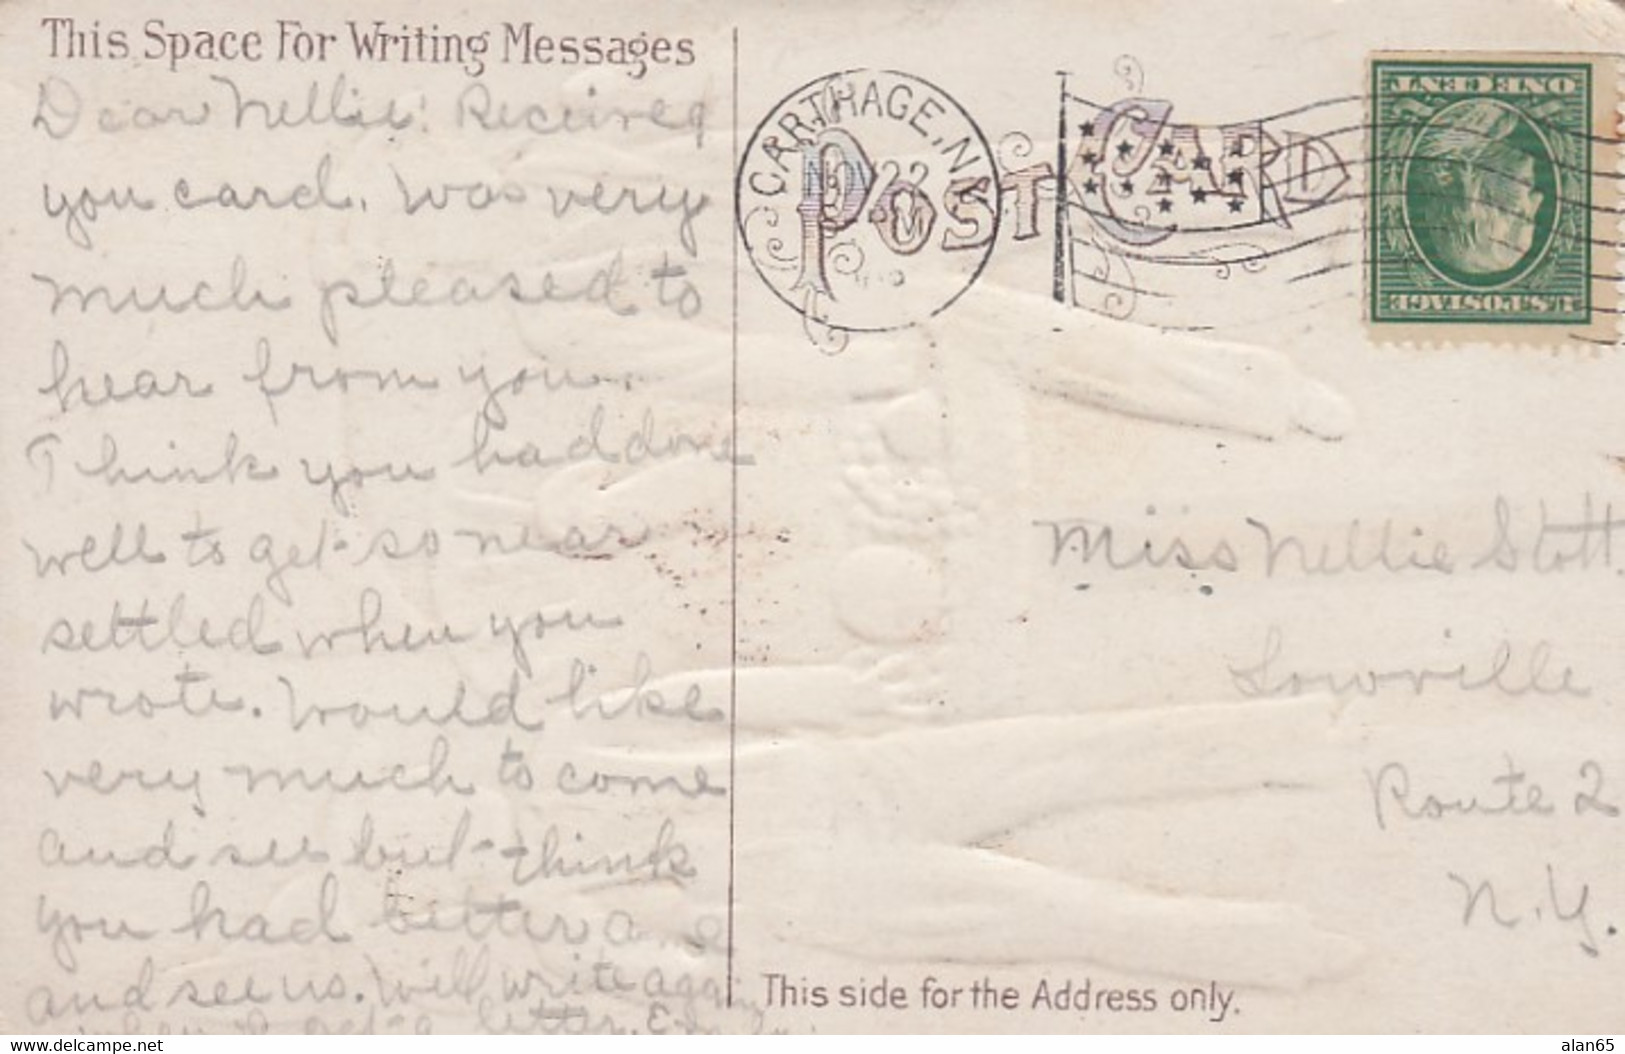 This Space For Writing Messages
Dear Nellie: Received
you card. Was very
much pleased to
hear from you.
Think you had done
well to get so near
settled when you
wrote. Would like
very much to come
and see but think
you had better come
and see us. Will write again
letter.
CARTHAGE, N.Y.
NOV 22
PM
POST CARD
ONE CENT
U.S. POSTAGE
Miss Nellie Stott.
Lowville
Route 2
N.Y.
This side for the Address only.
www.delcampe.net
alan65